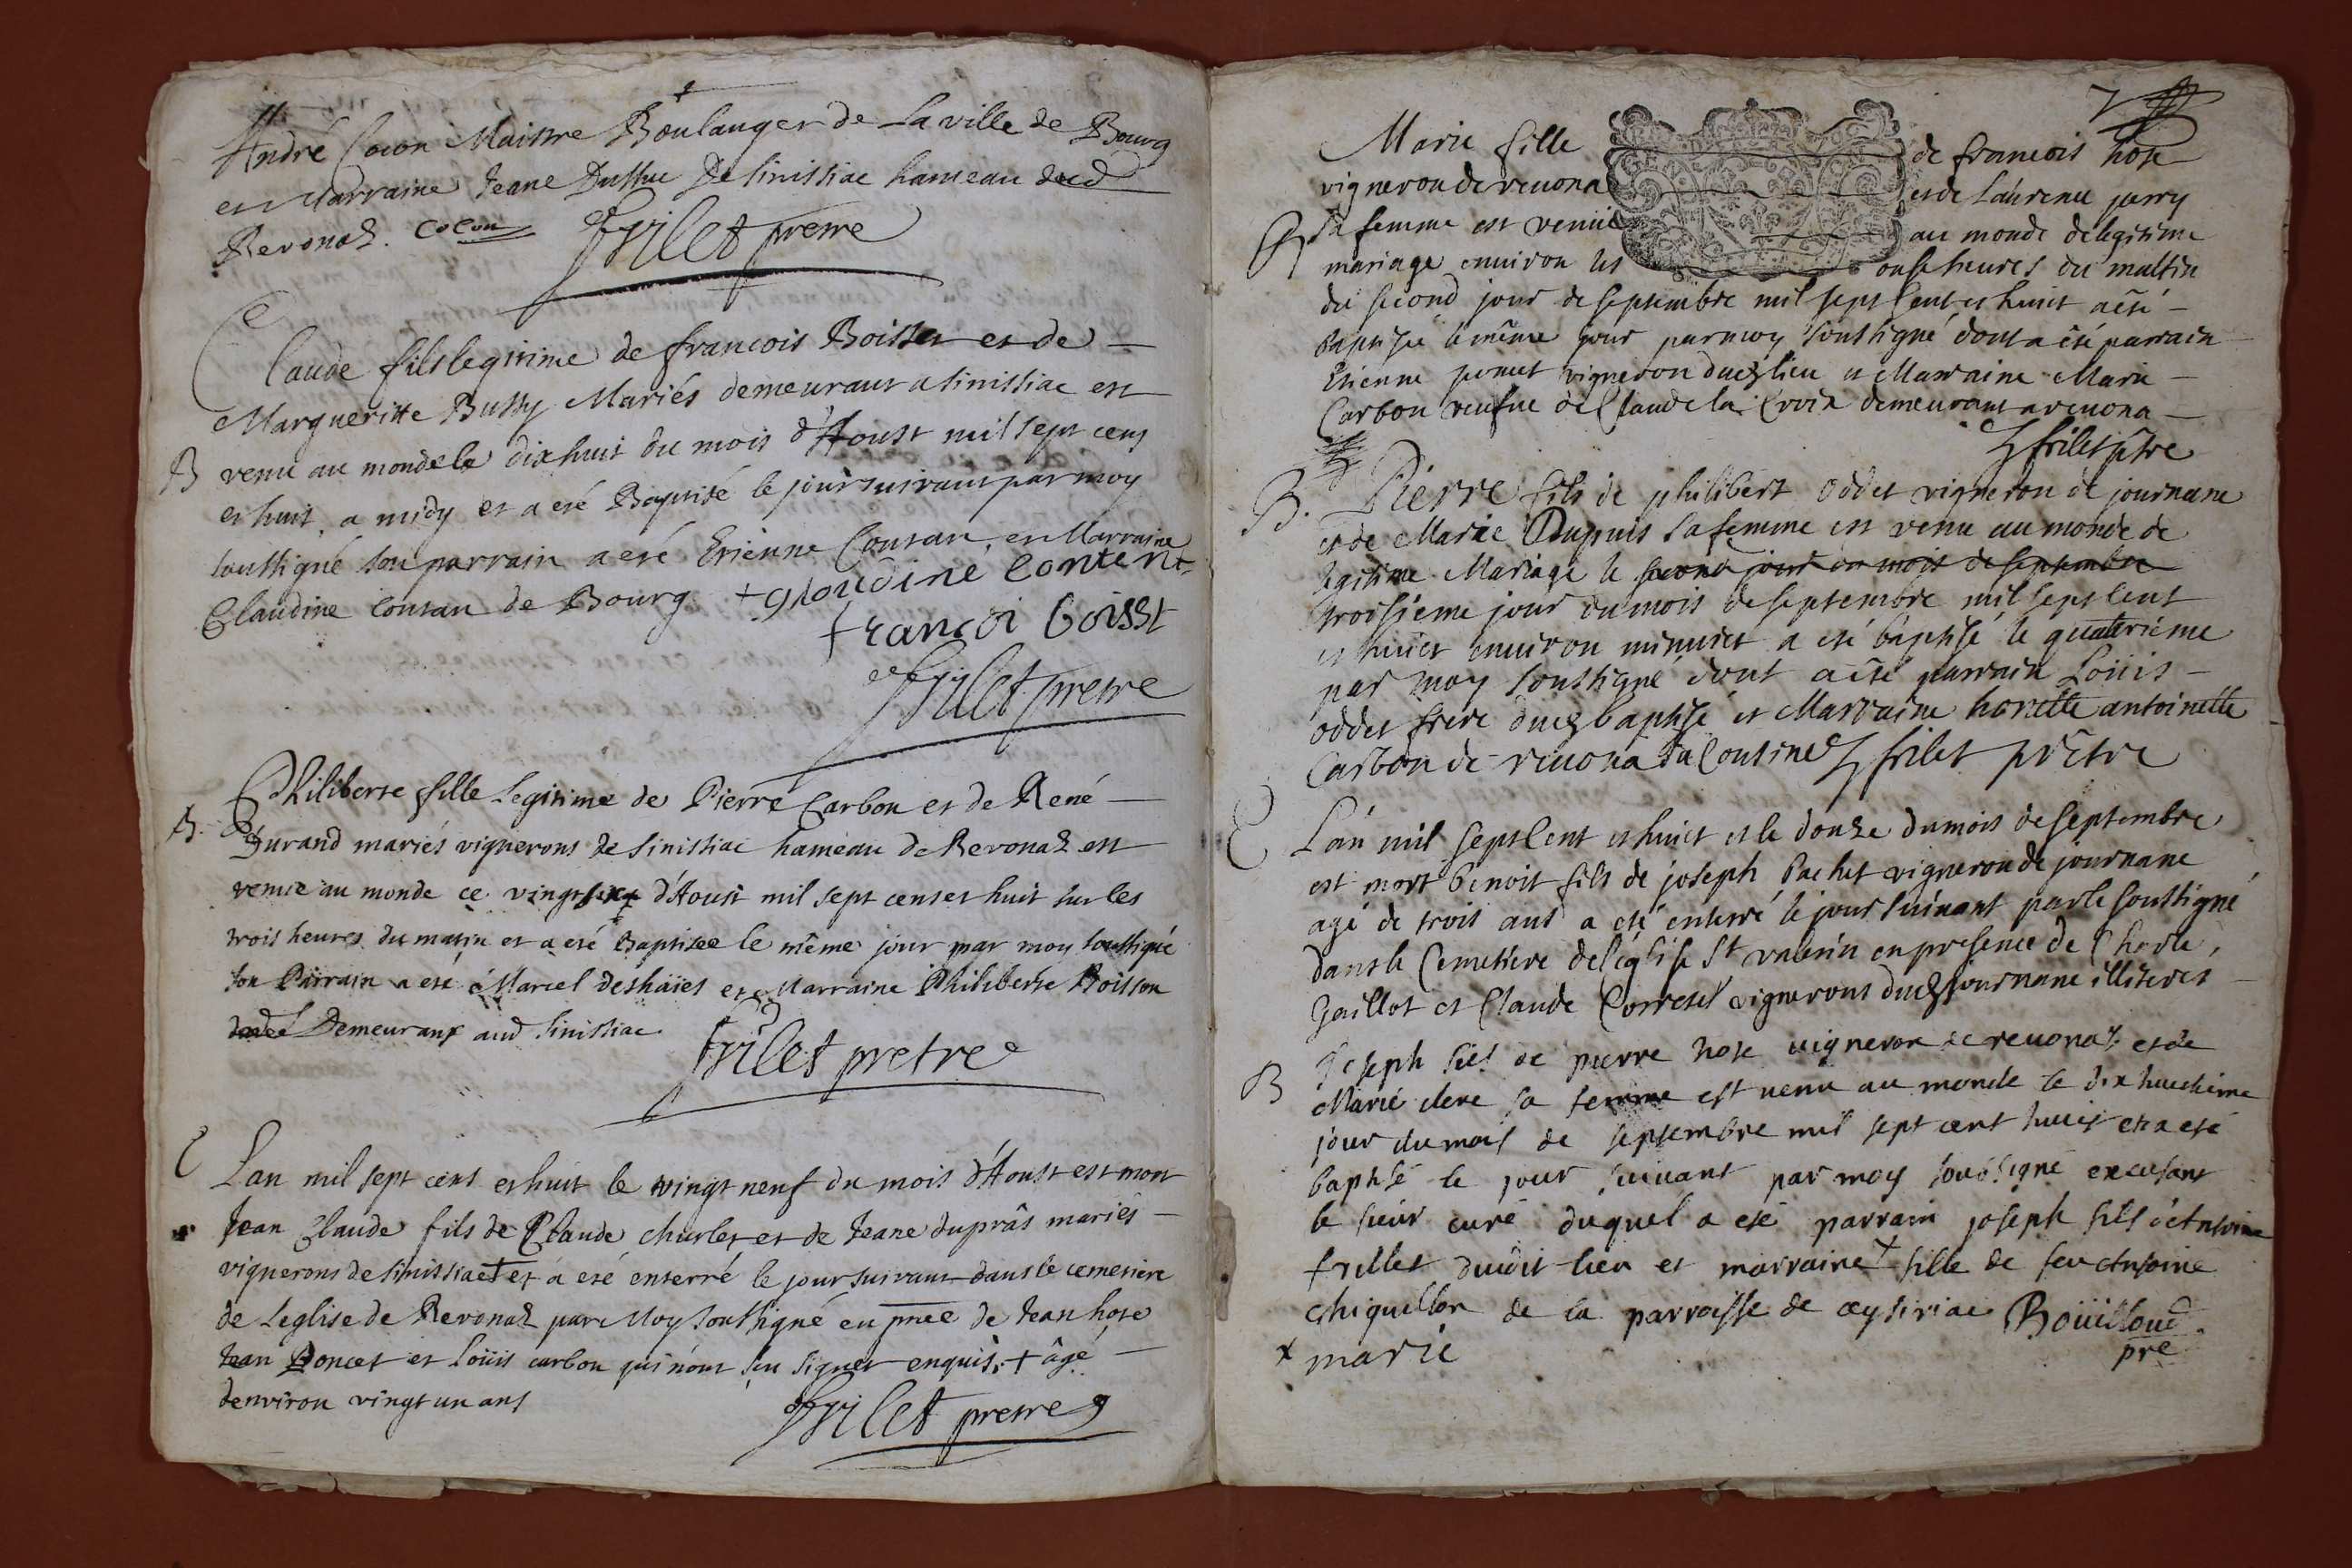 André Cocon Maistre Boulanger de La ville de Bourg
et Marraine Jeane Dussuc de Sinissiac hameau dud
Revonaz. Cocon frilet pretre
Claude fils legitime de francois Boisset et de
Margueritte Bussy Mariés demeurant a Sinissiac est
B venu au monde le dix huit du mois d'Aoust mil sept cens
et huit a midy et a eté Baptisé le jour suivant par moy
soussigné son parrain a eté Etienne Coutan et Marraine
Claudine Coutan de Bourg + gloudine Content
francoi boisst
frilet pretre
Philiberte fille Legitime de Pierre Carbon et de René
B. Durand mariés vignerons de Sinissiac hameau de Revonaz est
venue au monde ce vingt six d'Aoust mil sept cens et huit sur les
trois heures du matin et a eté Baptisée le même jour par moy soussigné
son Parrain a eté Marcel deshaies et Marraine Philiberte Boisson
Demeurant aud Sinissiac
frilet pretre
E Lan mil sept cens et huit le vingt neuf du mois d'Aoust est mort
Jean Claude fils de Claude Charlet et de Jeane duprâs mariés
vignerons de Sinissiac + et a eté enterré le jour suivant dans le cemetiere
de Leglise de Revonaz par Moy soussigné en pnce de Jean hote
Jean Doncet et Loüis carbon qui n'ont sçu signer enquis. + âgé
denviron vingt un ans
frilet pretre
7
Marie fille de francois hote
vigneron de revona et de Laurence jarry
B sa femme est venuë au monde de legitime
mariage environ les onse heures du mattin
du second jour de septembre mil sept Cent et huict a eté
baptisée le même jour par moy soussigné dont a eté parrain
Etienne vigneron dud lieu et Marraine Marie
Carbon veufue de Claude la Croix demeurant a revona
frilet ptre
B. Pierre fils de philibert oddet vigneron de journane
et de Marie Dupuis sa femme est venu au monde de
legitime Mariage le second jour du mois de septembre
troisieme jour du mois de septembre mil sept Cent
et huict environ minuict a eté baptisé le quatrieme
par moy soussigné dont a eté parrain Loüis
oddet frere dud baptisé et Marraine antoinette
Carbon de revona sa Cousine frilet prêtre
E L'an mil sept Cent et huict et le douze du mois de septembre
est mort benoit fils de joseph Pachet vigneron de journane
agé de trois ans a eté enterré le jour suivant par le soussigné
dans le Cemetiere de l'église St valerin en presence de Charle
Gaillot et Claude Corretel vignerons dud journane illiterés
B Joseph fils de pierre hote vigneron de revonaz et de
Marie clere sa femme est venu au monde le dix huictieme
jour du mois de septembre mil sept cent huict et a eté
baptisé le jour suivant par moy soussigné excusant
le sieur curé duquel a eté parrain joseph fils d'Antoine
frillet dudit lieu et marraine + fille de feu Antoine
chiquellon de la parroisse de ceysiriac Boüilloud
+ marie pre